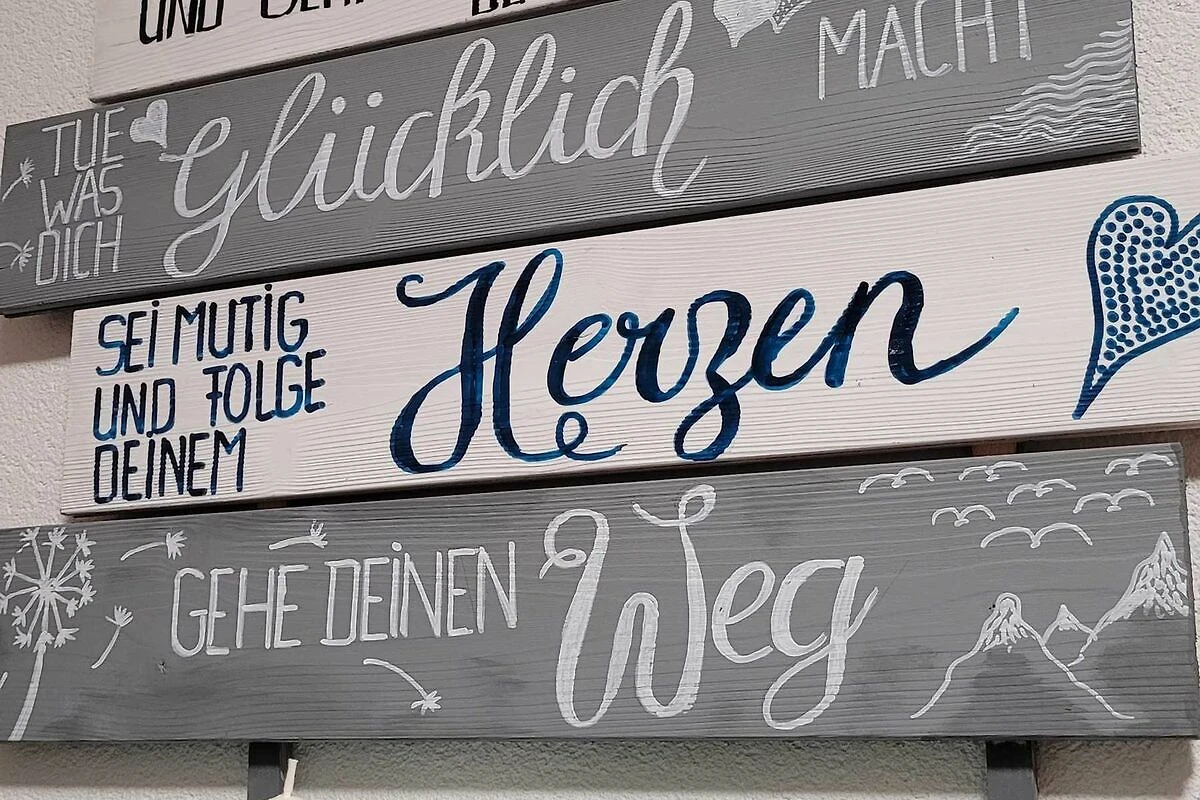 UND
TUE
WAS
DICH
Glücklich
MACHT
SEI MUTIG
UND FOLGE
DEINEM
Herzen
GEHE DEINEN
Weg